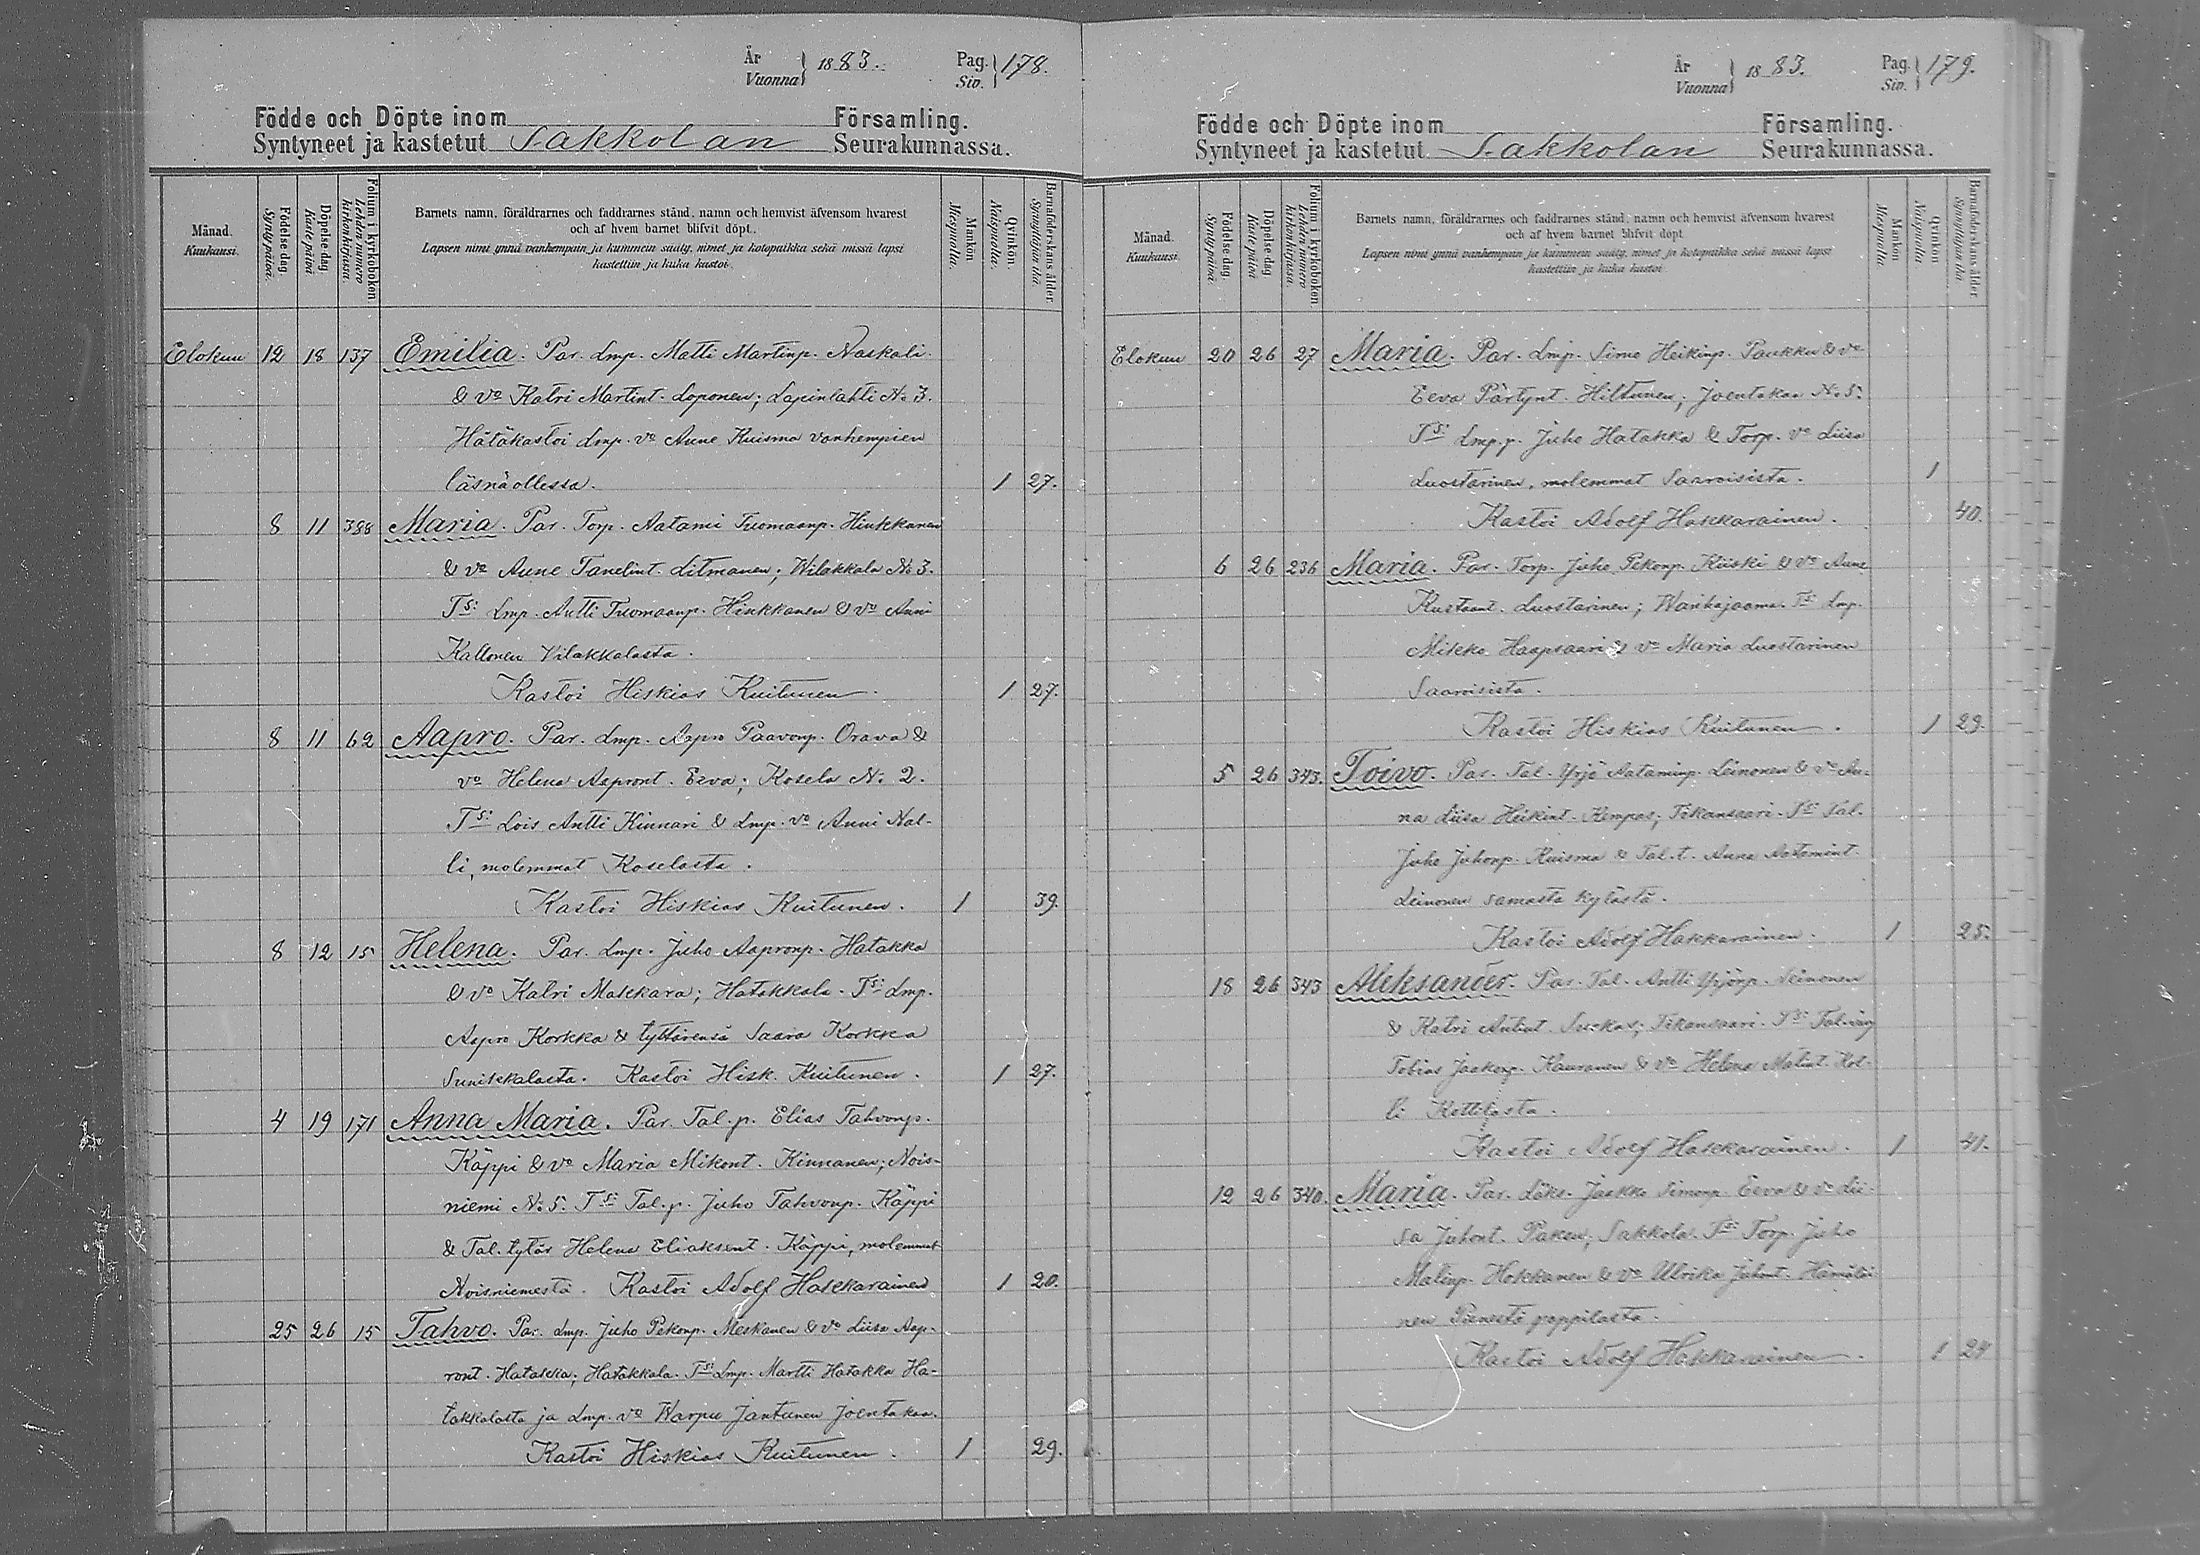 År Vuonna } 1883. Pag. Siv. } 178.
Födde och Döpte inom Församling.
Syntyneet ja kastetut Sakkolan Seurakunnassa.
Månad. Kuukausi.
Födelse-dag. Synty-päivä.
Döpelse-dag. Kaste-päivä
Folium i kyrkoboken. Lehden numero kirkonkirjassa.
Barnets namn, föräldrarnes och faddrarnes stånd, namn och hemvist äfvensom hvarest
och af hvem barnet blifvit döpt.
Lapsen nimi ynnä vanhempain ja kummein sääty, nimet ja kotopaikka sekä missä lapsi
kastettiin ja kuka kastoi.
Mankön. Miespuolia.
Qvinkön. Naispuolia.
Barnaföderskans ålder. Synnyttäjän ikä
Elokuu 12 18 137 Emilia. Par. Lmp. Matti Martinp. Naskali
& vo Katri Martint. Loponen; Lapinlahti No 3.
Hätäkastoi Lmp. vo Anne Kuisma vanhempien
läsnäollessa. 1 27.
8 11 388 Maria. Par. Torp. Aatami Tuomaanp. Hinkkanen
& vo Aune Tanelint. Litmanen; Wilakkala No 3.
Tsi Lmp. Antti Tuomaanp. Hinkkanen & vo Anni
Kallonen Vilakkalasta.
Kastoi Hiskias Kuitunen. 1 27.
8 11 62 Aapro. Par. Lmp. Aapro Paavonp. Orava &
vo Helena Aapront. Eeva; Kosela No 2.
Tsi Lois Antti Kinnari & Lmp. vo Anni Nal-
li, molemmat Koselasta.
Kastoi Hiskias Kuitunen. 1 39.
8 12 15 Helena. Par. Lmp. Juho Aapronp. Hatakka
& vo Katri Makkara; Hatakkala. Tsi Lmp.
Aapro Korkka & tyttärensä Saara Korkka
Sunikkalasta. Kastoi Hisk. Kuitunen. 1 27.
4 19 171 Anna Maria. Par. Tal. p. Elias Tahvonp.
Käppi & vo Maria Mikont. Kinnanen; Nois-
niemi No 5. Tsi Tal. p. Juho Tahvonp. Käppi
& Tal. tytär Helena Eliaksent. Käppi, molemmat
Noisniemestä. Kastoi Adolf Hakkarainen 1 20.
25 26 15 Tahvo. Par. Lmp. Juho Pekonp. Meskanen & vo Liisa Aap-
ront. Hatakka; Hatakkala. Tsi Lmp. Martti Hatakka Ha-
takkalasta ja Lmp. vo Warpu Jantunen Joentakaa.
Kastoi Hiskias Kuitunen. 1 29.
År Vuonna } 1883. Pag. Siv. } 179.
Födde och Döpte inom Församling.
Syntyneet ja kastetut Sakkolan Seurakunnassa.
Månad. Kuukausi.
Födelse-dag. Synty-päivä.
Döpelse-dag. Kaste-päivä
Folium i kyrkoboken. Lehden numero kirkonkirjassa.
Barnets namn, föräldrarnes och faddrarnes stånd, namn och hemvist äfvensom hvarest
och af hvem barnet blifvit döpt
Lapsen nimi ynnä vanhempain ja kummein sääty, nimet ja kotopaikka sekä missä lapsi
kastettiin ja kuka kastoi
Mankön Miespuolia.
Qvinkön Naispuolia
Barnaföderskans ålder Synnyttäjän ikä
Elokuu 20 26 27 Maria. Par. Lmp. Simo Heikinp. Paukku & vo
Eeva Pärtynt. Hiltunen; Joentakaa No 5.
Tsi Lmp. p. Juho Hatakka & Torp. vo Liisa
Luostarinen, molemmat Saaroisista. 1
Kastoi Adolf Hakkarainen. 40.
6 26 236 Maria. Par. Torp. Juho Pekonp. Kiiski & vo Anne
Kustaant. Luostarinen; Wanhajaama. Tsi Lmp.
Mikko Haapsaari & vo Maria Luostarinen
Saaroisista.
Kastoi Hiskias Kuitunen. 1 29.
5 26 343. Toivo. Par. Tal. Yrjö Aataminp. Leinonen & vo An-
na Liisa Heikint. Kempas; Tikansaari. Tsi Tal.
Juho Juhonp. Kuisma & Tal. t. Anna Aatamint
Leinonen samasta kylästä.
Kastoi Adolf Hakkarainen. 1 25.
18 26 343 Aleksander. Par. Tal. Antti Yrjönp. Leinonen
& Katri Antint. Suikas; Tikansaari. Tsi
Tobias Jaakonp. Kauranen & vo Helena Matint. Kot-
ti Kottilasta.
Kastoi Adolf Hakkarainen. 1 41.
12 26 340. Maria. Par. Läks. Jaakko Simonp. Eeva & vo Lii-
sa Juhont. Paken; Sakkola. Tsi Torp. Juho
Matinp. Hokkanen & vo Ulrika Juhont. Hämäläi-
nen pappilasta.
Kastoi Adolf Hakkarainen. 1 24